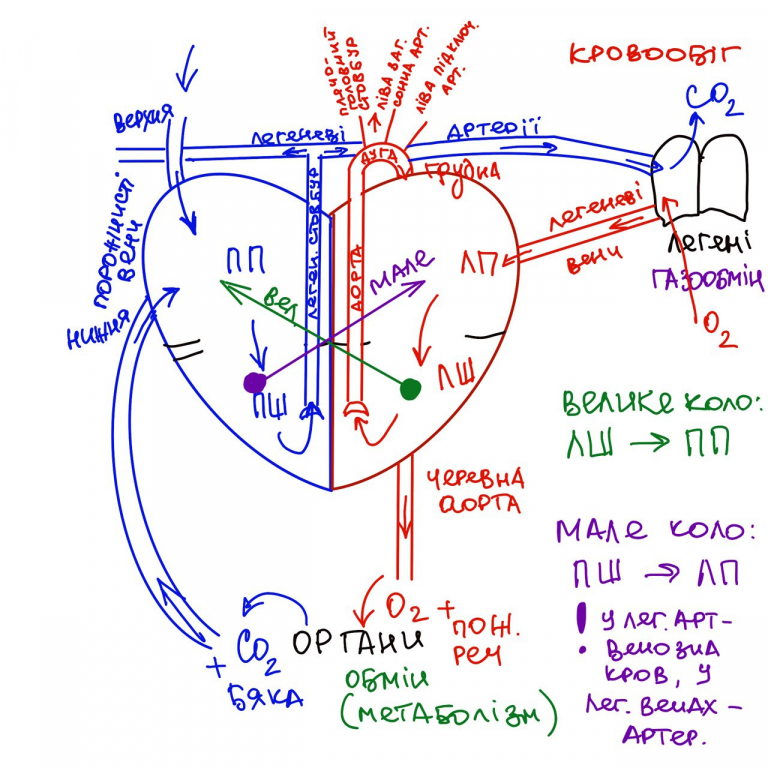 КРОВООБІГ
ПЛЕЧО-
ГОЛОВНИЙ
СТОВБУР
ЛІВА ЗАГ.
СОННА АРТ.
ЛІВА ПІДКЛЮЧ.
АРТ.
CO2
ВЕРХНЯ
ЛЕГЕНЕВІ
АРТЕРІЇ
ДУГА
ГРУДНА
ПОРОЖНИСТІ
ВЕНИ
НИЖНЯ
ЛЕГЕН. СТОВБУР
АОРТА
ПП
ВЕЛ
МАЛЕ
ЛП
ЛЕГЕНЕВІ
ВЕНИ
ЛЕГЕНІ
ГАЗООБМІН
O2
ПШ
ЛШ
ВЕЛИКЕ КОЛО:
ЛШ → ПП
ЧЕРЕВНА
АОРТА
МАЛЕ КОЛО:
ПШ → ЛП
! У ЛЕГ. АРТ –
ВЕНОЗНА
КРОВ, У
ЛЕГ. ВЕНАХ –
АРТЕР.
O2 +
ПОЖ.
РЕЧ
ОРГАНИ
CO2
+
БЯКА
ОБМІН
(МЕТАБОЛІЗМ)